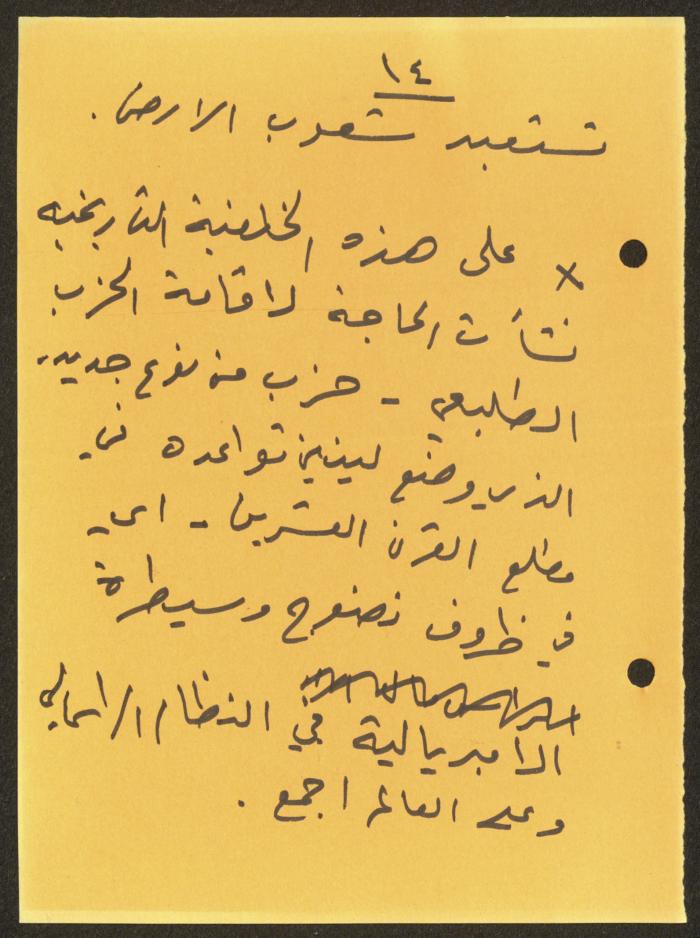 ١٤
تستعبد شعوب الارض .
x على هذه الخلفية التاريخية
نشأت الحاجة لاقامة الحزب
الطليعي - حزب من نوع جديد،
الذي وضع لينين قواعده في
مطلع القرن العشرين - اي
في ظروف نضوج وسيطرة
الامبريالية في النظام الراسمالي
وعلى العالم اجمع .